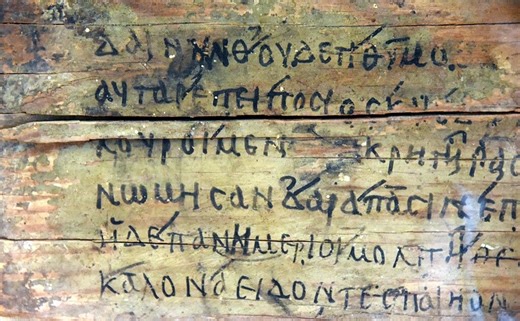 ΔΑΙΝΥΝΘΟΥΔΕΤΙΘΥΜΟ
ΑΥΤΑΡΕΠΕΙΠΟϹΙΟϹΚ
ΚΟΥΡΟΙΜΕΝ ΚΡΗΤΗΡΑϹ
ΝΩΜΗϹΑΝΔΑΡΑΠΑϹΙΝΕΠ
ΟΙΔΕΠΑΝΗΜΕΡΙΟΙΜΟΛΠΗΘΕ
ΚΑΛΟΝΑΕΙΔΟΝΤΕϹΠΑΙΗΟΝ